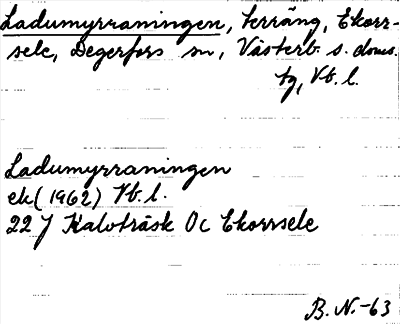 Ladumyrraningen, terräng, Ekorr-
sele, Degerfors sn, Västerb. s. doms.
tg, Vb. l.
Ladumyrraningen
ek (1962) Vb. l.
22 J Kalvträsk Oc Ekorrsele
B. N. -63